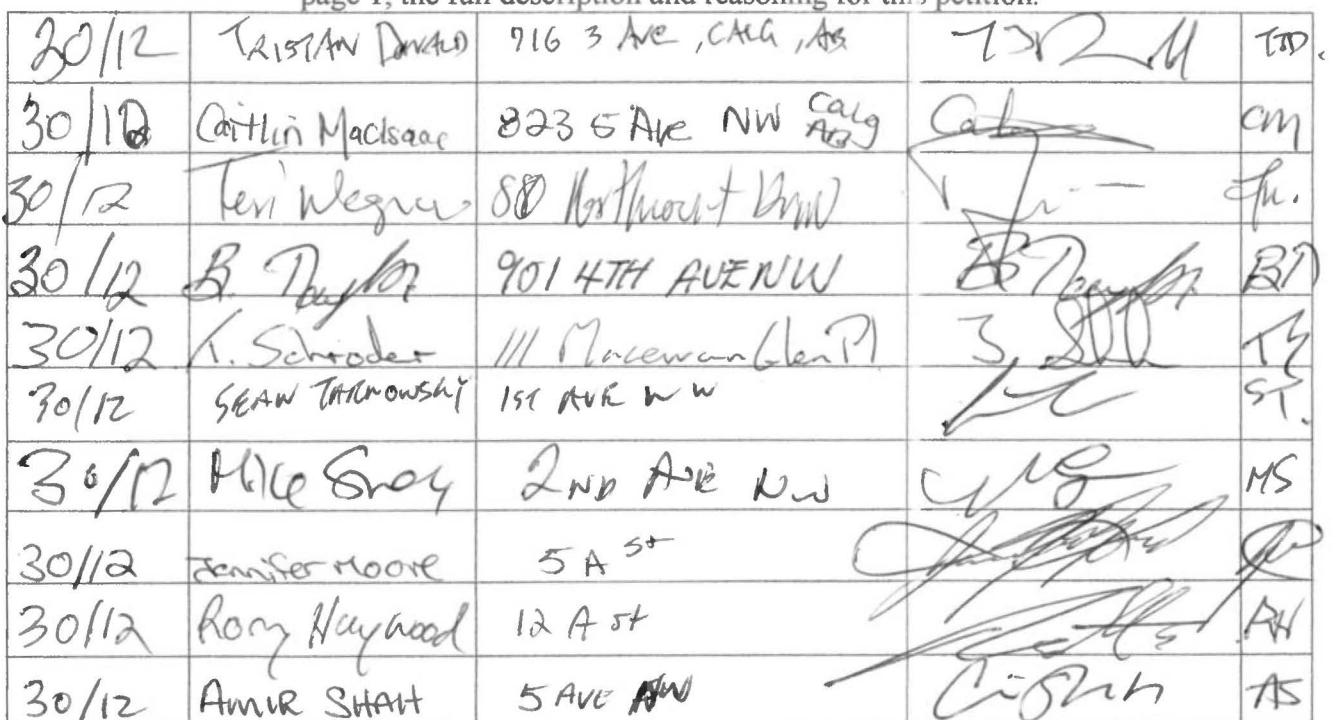 page 1, the full description and reasoning for this petition.
30/12 TRISTAN DONALD 716 3 Ave, CALG, AB TJD.
30/12 Caitlin MacIsaac 823 5 Ave NW Calg AB CM
30/12 Teri 80 Northmount Dr NW
30/12 B. Taylor 901 4TH AVE NW B Taylor BT
30/12 T. Schroder 111 Macewan Glen Pl TS
30/12 SEAN TARNOWSKY 1ST AVE NW ST.
30/12 Mike 2ND AVE NW MS
30/12 Jennifer Moore 5 A St
30/12 Rory Haywood 12 A st RH
30/12 AMIR SHAH 5 AVE NW AS